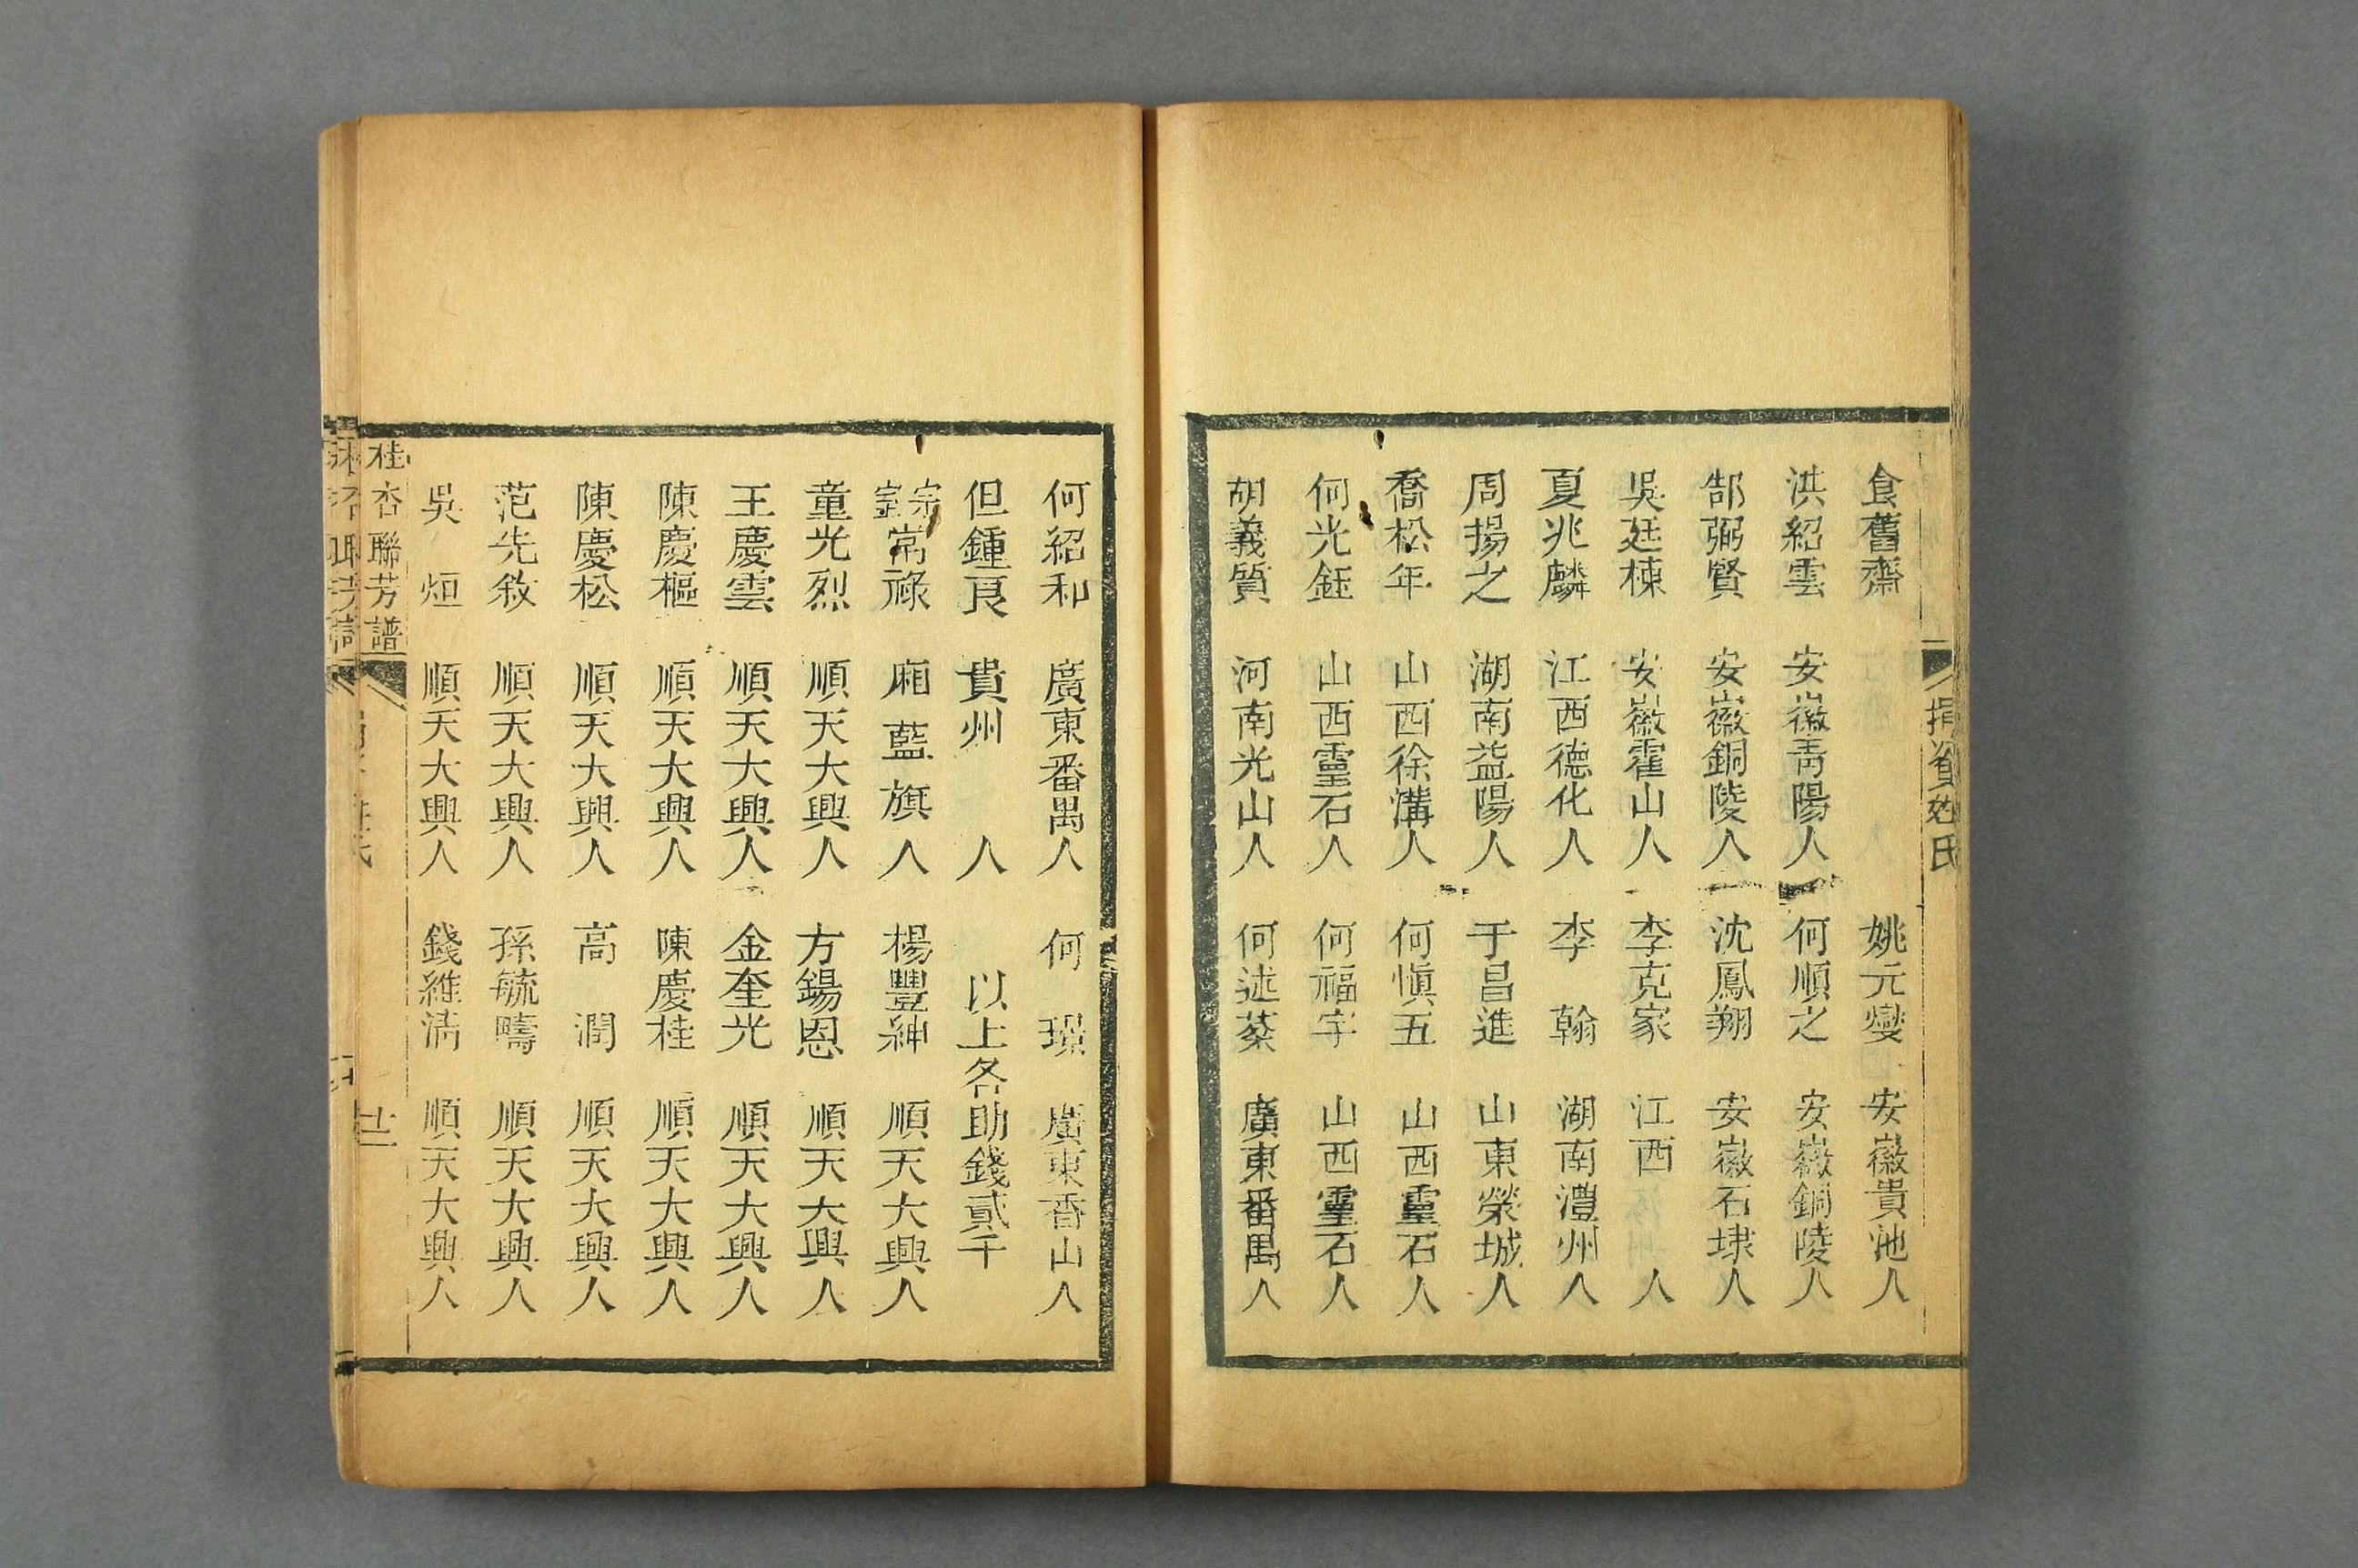 捐貲姓氏
食舊齋 姚元燮 安徽貴池人
洪紹雲 安徽靑陽人 何順之 安徽銅陵人
郜弼賢 安徽銅陵人 沈鳳翔 安徽石埭人
吳廷棟 安徽霍山人 李克家 江西 人
夏兆麟 江西德化人 李 翰 湖南澧州人
周揚之 湖南益陽人 于昌進 山東榮城人
喬松年 山西徐溝人 何愼五 山西靈石人
何光鈺 山西靈石人 何福宇 山西靈石人
胡義質 河南光山人 何述棻 廣東番禺人
何紹和 廣東番禺人 何 璟 廣東香山人
但鍾良 貴州 人 以上各助錢貳千
宗室常祿 廂藍旗人 楊豐紳 順天大興人
童光烈 順天大興人 方錫恩 順天大興人
王慶雲 順天大興人 金奎光 順天大興人
陳慶樞 順天大興人 陳慶桂 順天大興人
陳慶松 順天大興人 高 澗 順天大興人
范先敘 順天大興人 孫毓疇 順天大興人
吳 烜 順天大興人 錢維淸 順天大興人
桂杏聯芳譜